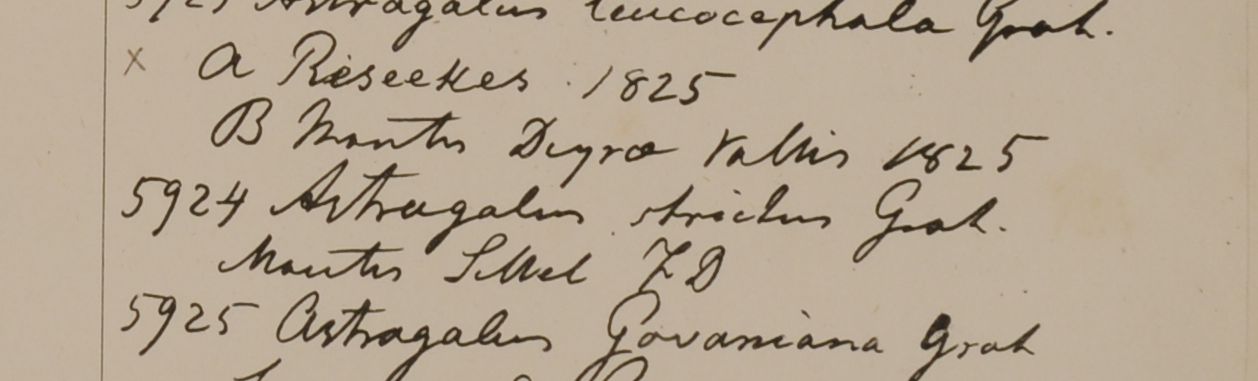 5923 Astragalus leucocephala Grah.
x a Riseekes 1825
B Montis Deyrae Vallis 1825
5924 Astragalus strictus Grah.
Montis Sillet FD
5925 Astragalus Govaniana Grah